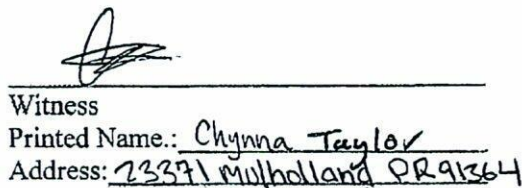 Witness
Printed Name.: Chynna Taylor
Address: 23371 Mulholland DR 91364